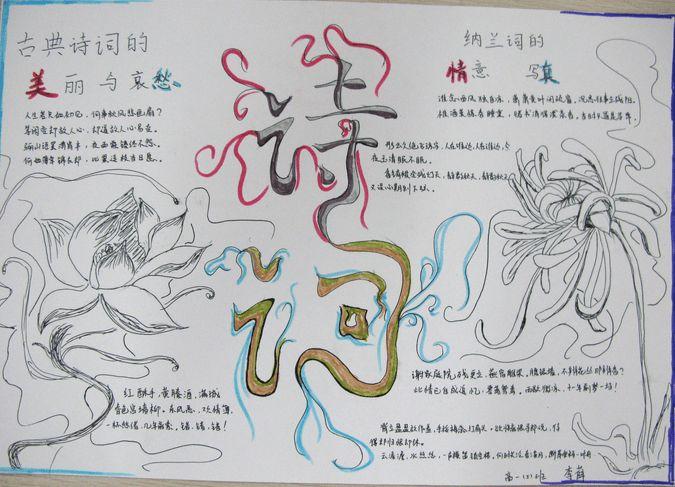 古典诗词的
美丽与哀愁
人生若只如初见，何事秋风悲画扇？
等闲变却故人心，却道故人心易变。
骊山语罢清宵半，夜雨霖铃终不怨。
何如薄幸锦衣郎，比翼连枝当日愿。
诗词
纳兰词的
情意 写真
谁念西风独自凉，萧萧黄叶闭疏窗，沉思往事立残阳。
被酒莫惊春睡重，赌书消得泼茶香，当时只道是寻常。
红酥手，黄藤酒，满城
春色宫墙柳。东风恶，欢情薄，
一杯愁绪，几年离索。错，错，错！
谢家庭院残更立，燕宿雕梁。月度银墙，不辨花丛那辨香？
此情已自成追忆，零落鸳鸯。雨歇微凉，十一年前梦一场！
高一(2)班